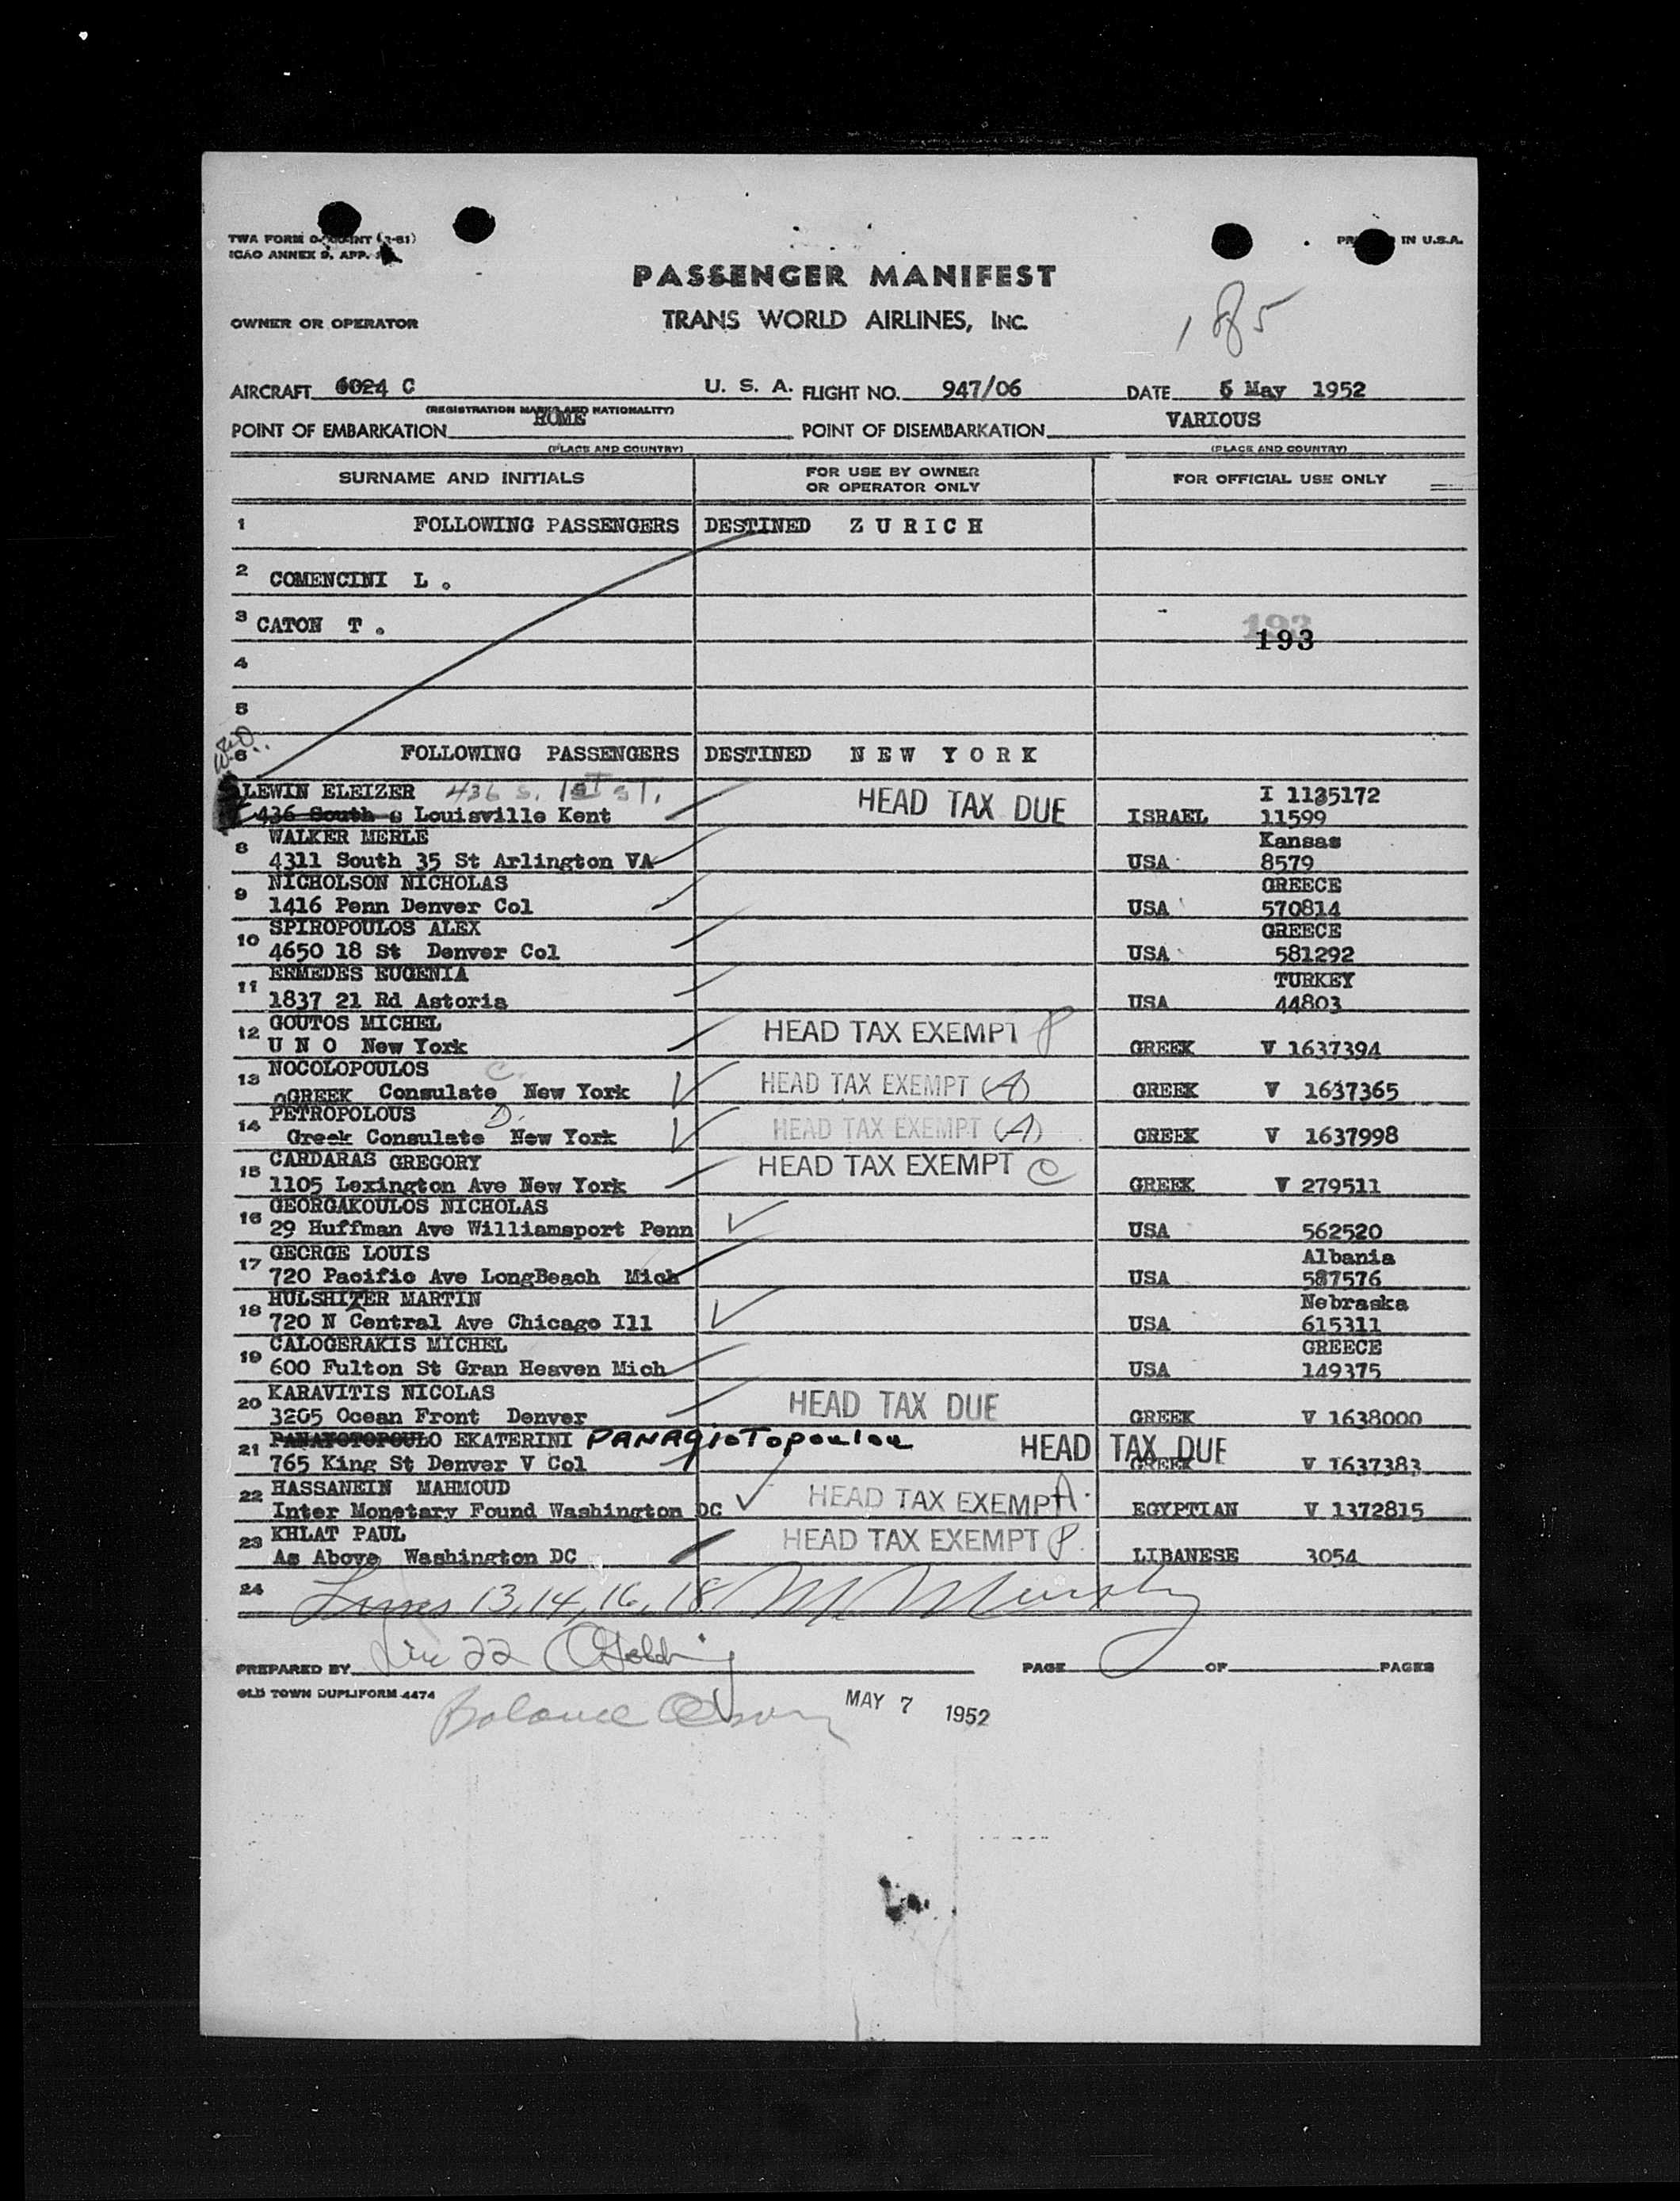 TWA FORM
IN U.S.A.
ICAO ANNEX 9, APP.
PASSENGER MANIFEST
OWNER OR OPERATOR TRANS WORLD AIRLINES, INC.
185
AIRCRAFT 6024 C U. S. A. FLIGHT NO. 947/06 DATE 6 May 1952
(REGISTRATION MARKS AND NATIONALITY)
POINT OF EMBARKATION ROME POINT OF DISEMBARKATION VARIOUS
(PLACE AND COUNTRY) (PLACE AND COUNTRY)
SURNAME AND INITIALS FOR USE BY OWNER OR OPERATOR ONLY FOR OFFICIAL USE ONLY
1 FOLLOWING PASSENGERS DESTINED Z U R I C H
2 COMENCINI L .
3 CATON T .
193
193
4
5
6 FOLLOWING PASSENGERS DESTINED N E W Y O R K
LEWIN ELEIZER 436 S. 1ST ST. HEAD TAX DUE I 1135172
436 South s Louisville Kent ISRAEL 11599
8 WALKER MERLE Kansas
4311 South 35 St Arlington VA USA 8579
9 NICHOLSON NICHOLAS GREECE
1416 Penn Denver Col USA 570814
10 SPIROPOULOS ALEX GREECE
4650 18 St Denver Col USA 581292
11 ERMEDES EUGENIA TURKEY
1837 21 Rd Astoria USA 44803
12 GOUTOS MICHEL HEAD TAX EXEMPT P
U N O New York GREEK V 1637394
13 NOCOLOPOULOS C. HEAD TAX EXEMPT (A)
GREEK Consulate New York GREEK V 1637365
14 PETROPOLOUS D. HEAD TAX EXEMPT (A)
Greek Consulate New York GREEK V 1637998
15 CARDARAS GREGORY HEAD TAX EXEMPT C
1105 Lexington Ave New York GREEK V 279511
16 GEORGAKOULOS NICHOLAS
29 Huffman Ave Williamsport Penn USA 562520
17 GEORGE LOUIS Albania
720 Pacific Ave LongBeach Mich USA 587576
18 HULSHIZER MARTIN Nebraska
720 N Central Ave Chicago Ill USA 615311
19 CALOGERAKIS MICHEL GREECE
600 Fulton St Gran Heaven Mich USA 149375
20 KARAVITIS NICOLAS HEAD TAX DUE
3205 Ocean Front Denver GREEK V 1638000
21 PANAYOTOPOULO EKATERINI PANAgioTopoulou HEAD TAX DUE
765 King St Denver V Col GREEK V 1637383
22 HASSANEIN MAHMOUD HEAD TAX EXEMPT A.
Inter Monetary Found Washington DC EGYPTIAN V 1372815
23 KHLAT PAUL HEAD TAX EXEMPT P.
As Above Washington DC LIBANESE 3054
24 Lines 13, 14, 16, 18 M. Murphy
PREPARED BY Line 22 PAGE OF PAGES
OLD TOWN DUPLIFORM 4474
Balance MAY 7 1952